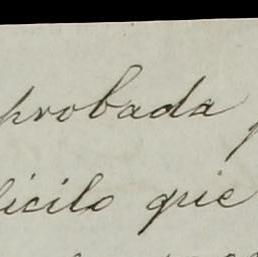 probada
licilo que